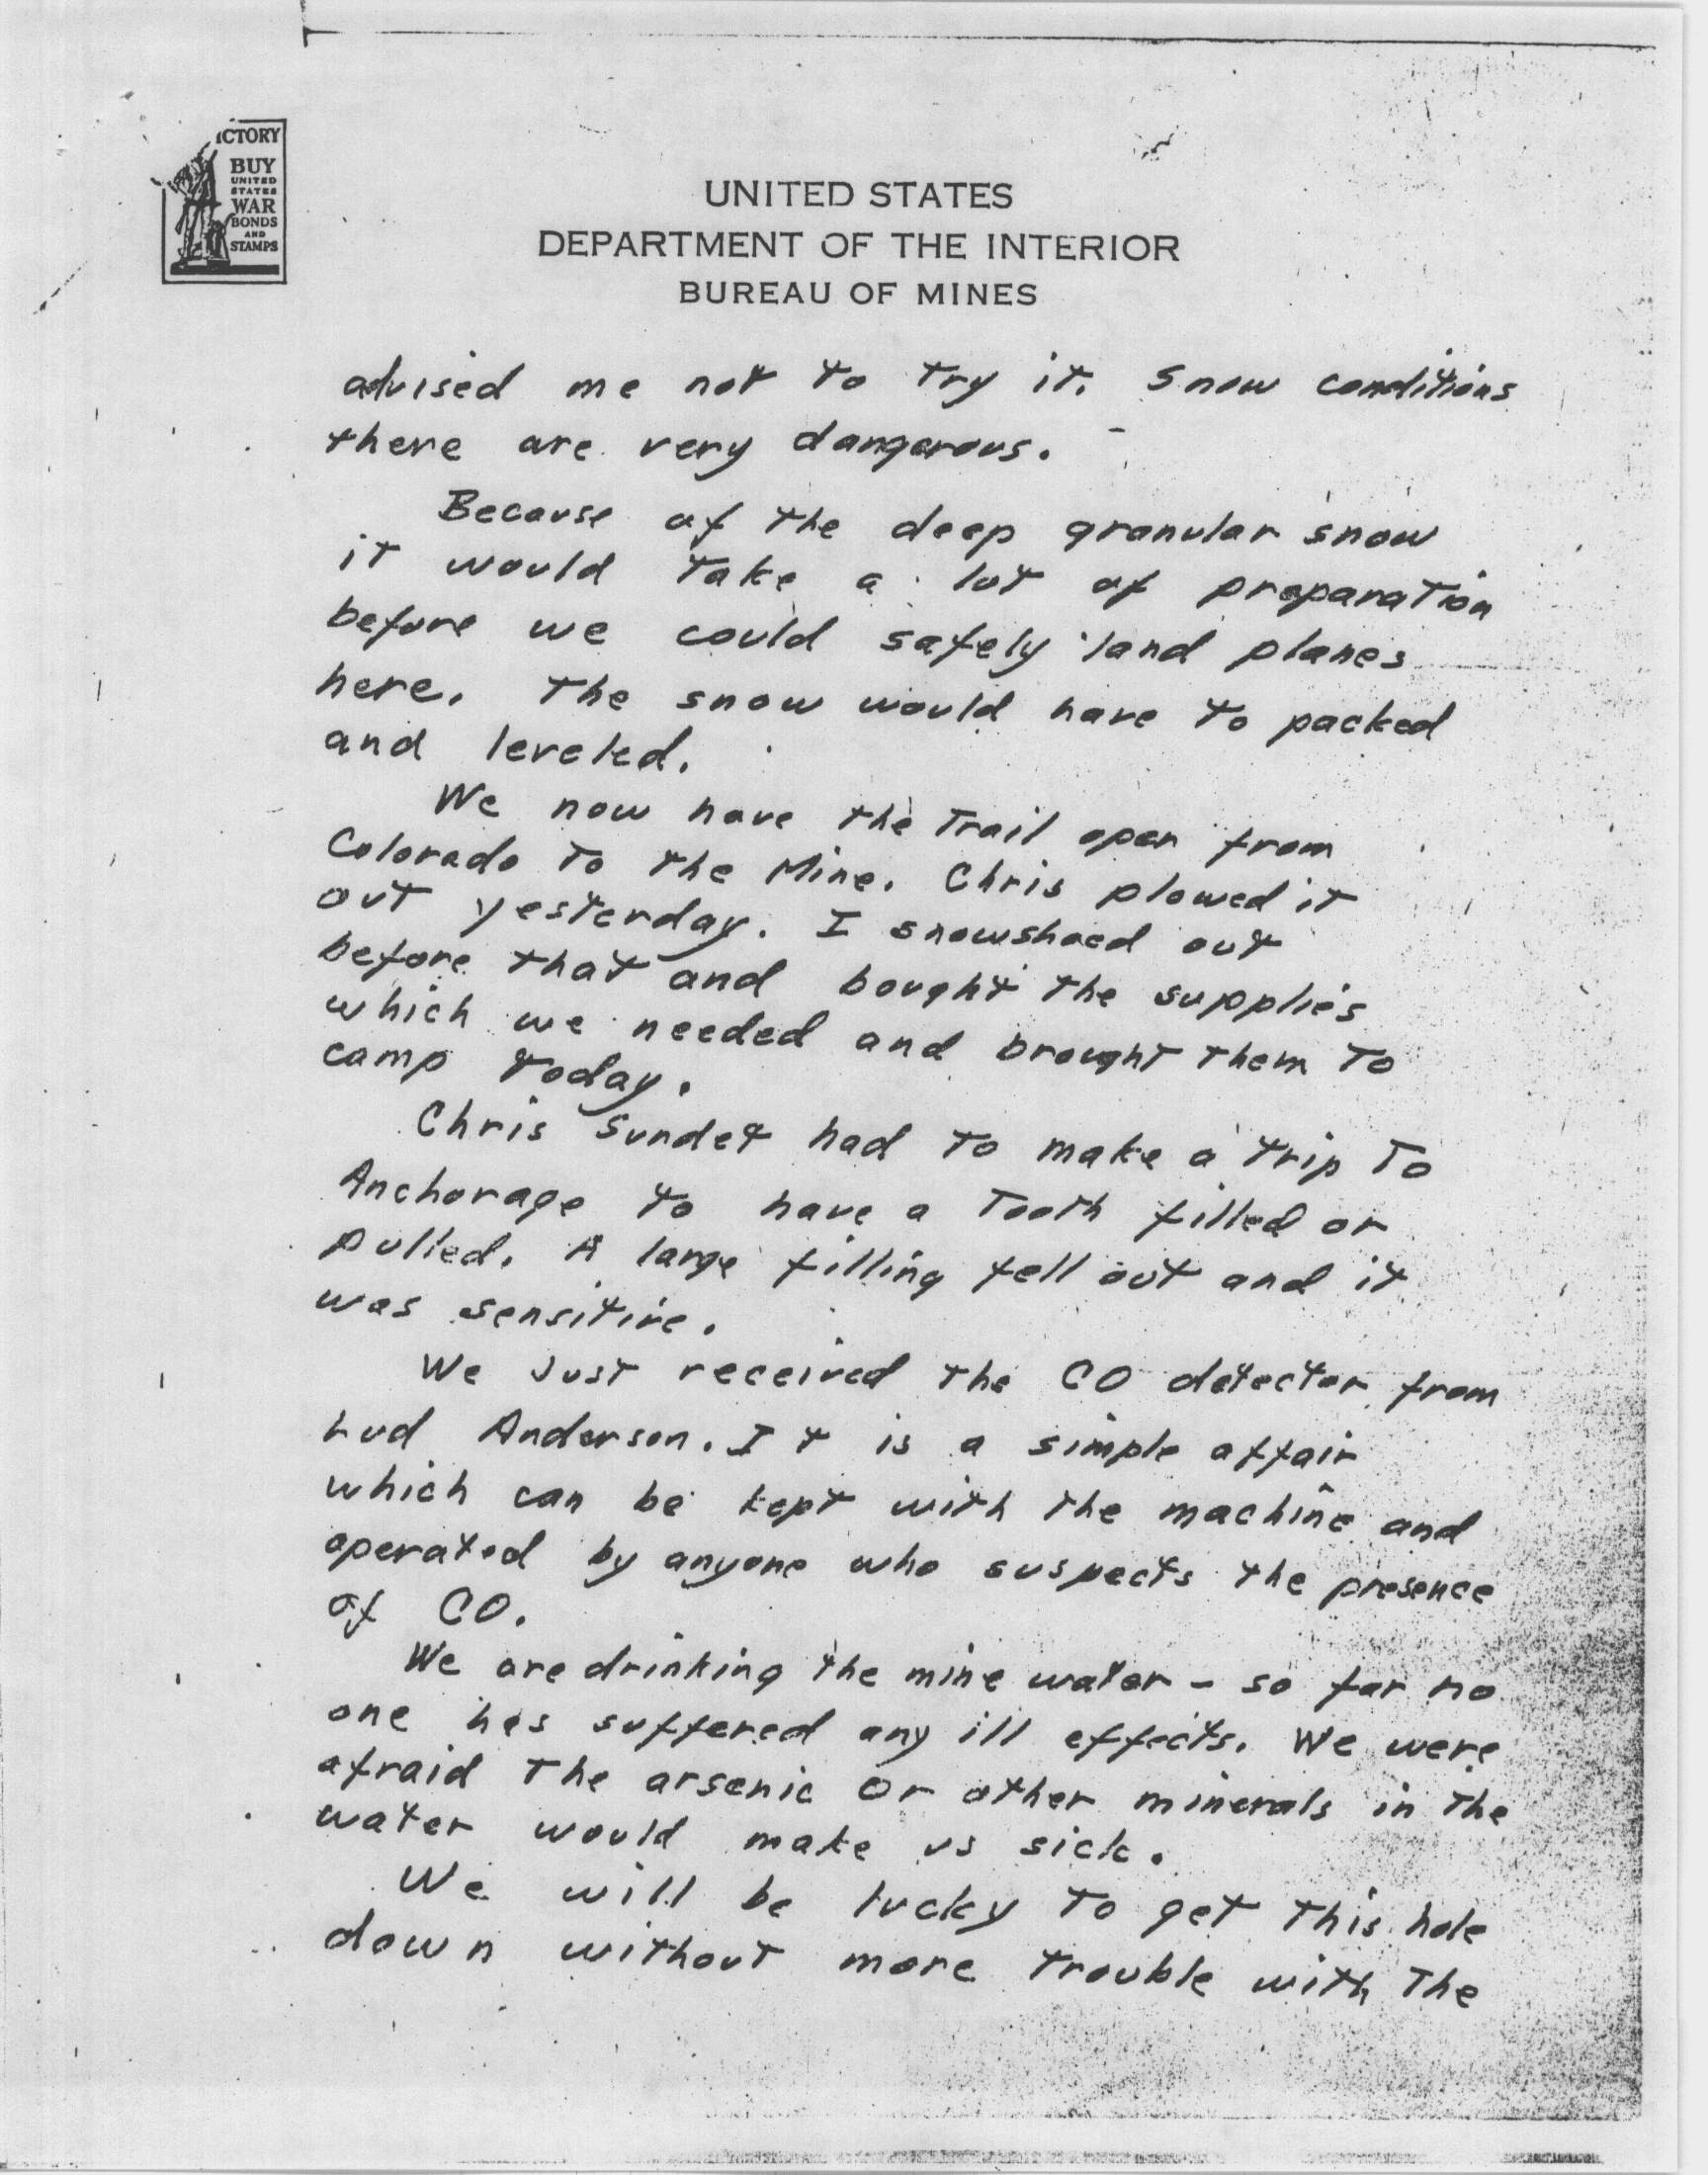 ICTORY
BUY
UNITED
STATES
WAR
BONDS
AND
STAMPS
UNITED STATES
DEPARTMENT OF THE INTERIOR
BUREAU OF MINES
advised me not to try it. Snow conditions
there are very dangerous.
Because of the deep granular snow
it would take a lot of preparation
before we could safely land planes
here. The snow would have to packed
and leveled.
We now have the trail open from
Colorado to the Mine. Chris plowed it
out yesterday. I snowshoed out
before that and bought the supplies
which we needed and brought them to
camp today.
Chris Sundet had to make a trip to
Anchorage to have a tooth filled or
pulled. A large filling fell out and it
was sensitive.
We just received the CO detector from
Lud Anderson. It is a simple affair
which can be kept with the machine and
operated by anyone who suspects the presence
of CO.
We are drinking the mine water - so far no
one has suffered any ill effects. We were
afraid the arsenic or other minerals in the
water would make us sick.
We will be lucky to get this hole
down without more trouble with the